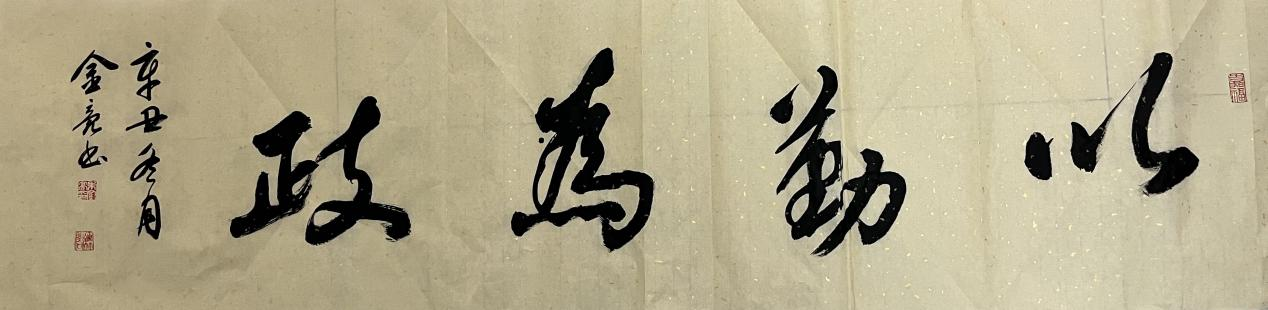 以勤為政
辛丑冬月
金亮书